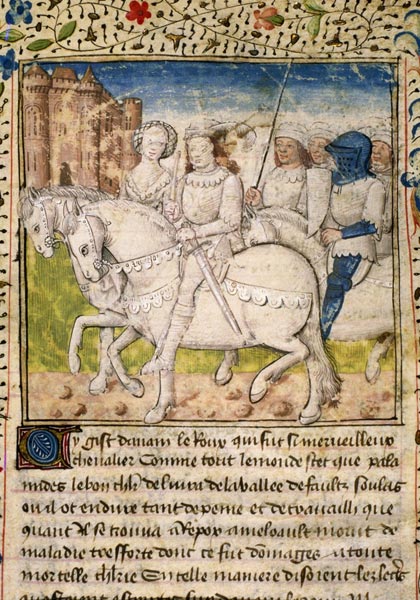 Cy gist danain le Roux qui fut si merveilleux
chevalier Comme tout le monde scet que pala
mides le bon chlr deliura de la vallee de faulx soulas
ou il ot endure tant de peine et de travail que
quant il se trouva a Repox ameloault morut de
maladie tresforte dont ce fut dommages a toute
mortelle chlrie En telle maniere disoient les lectres